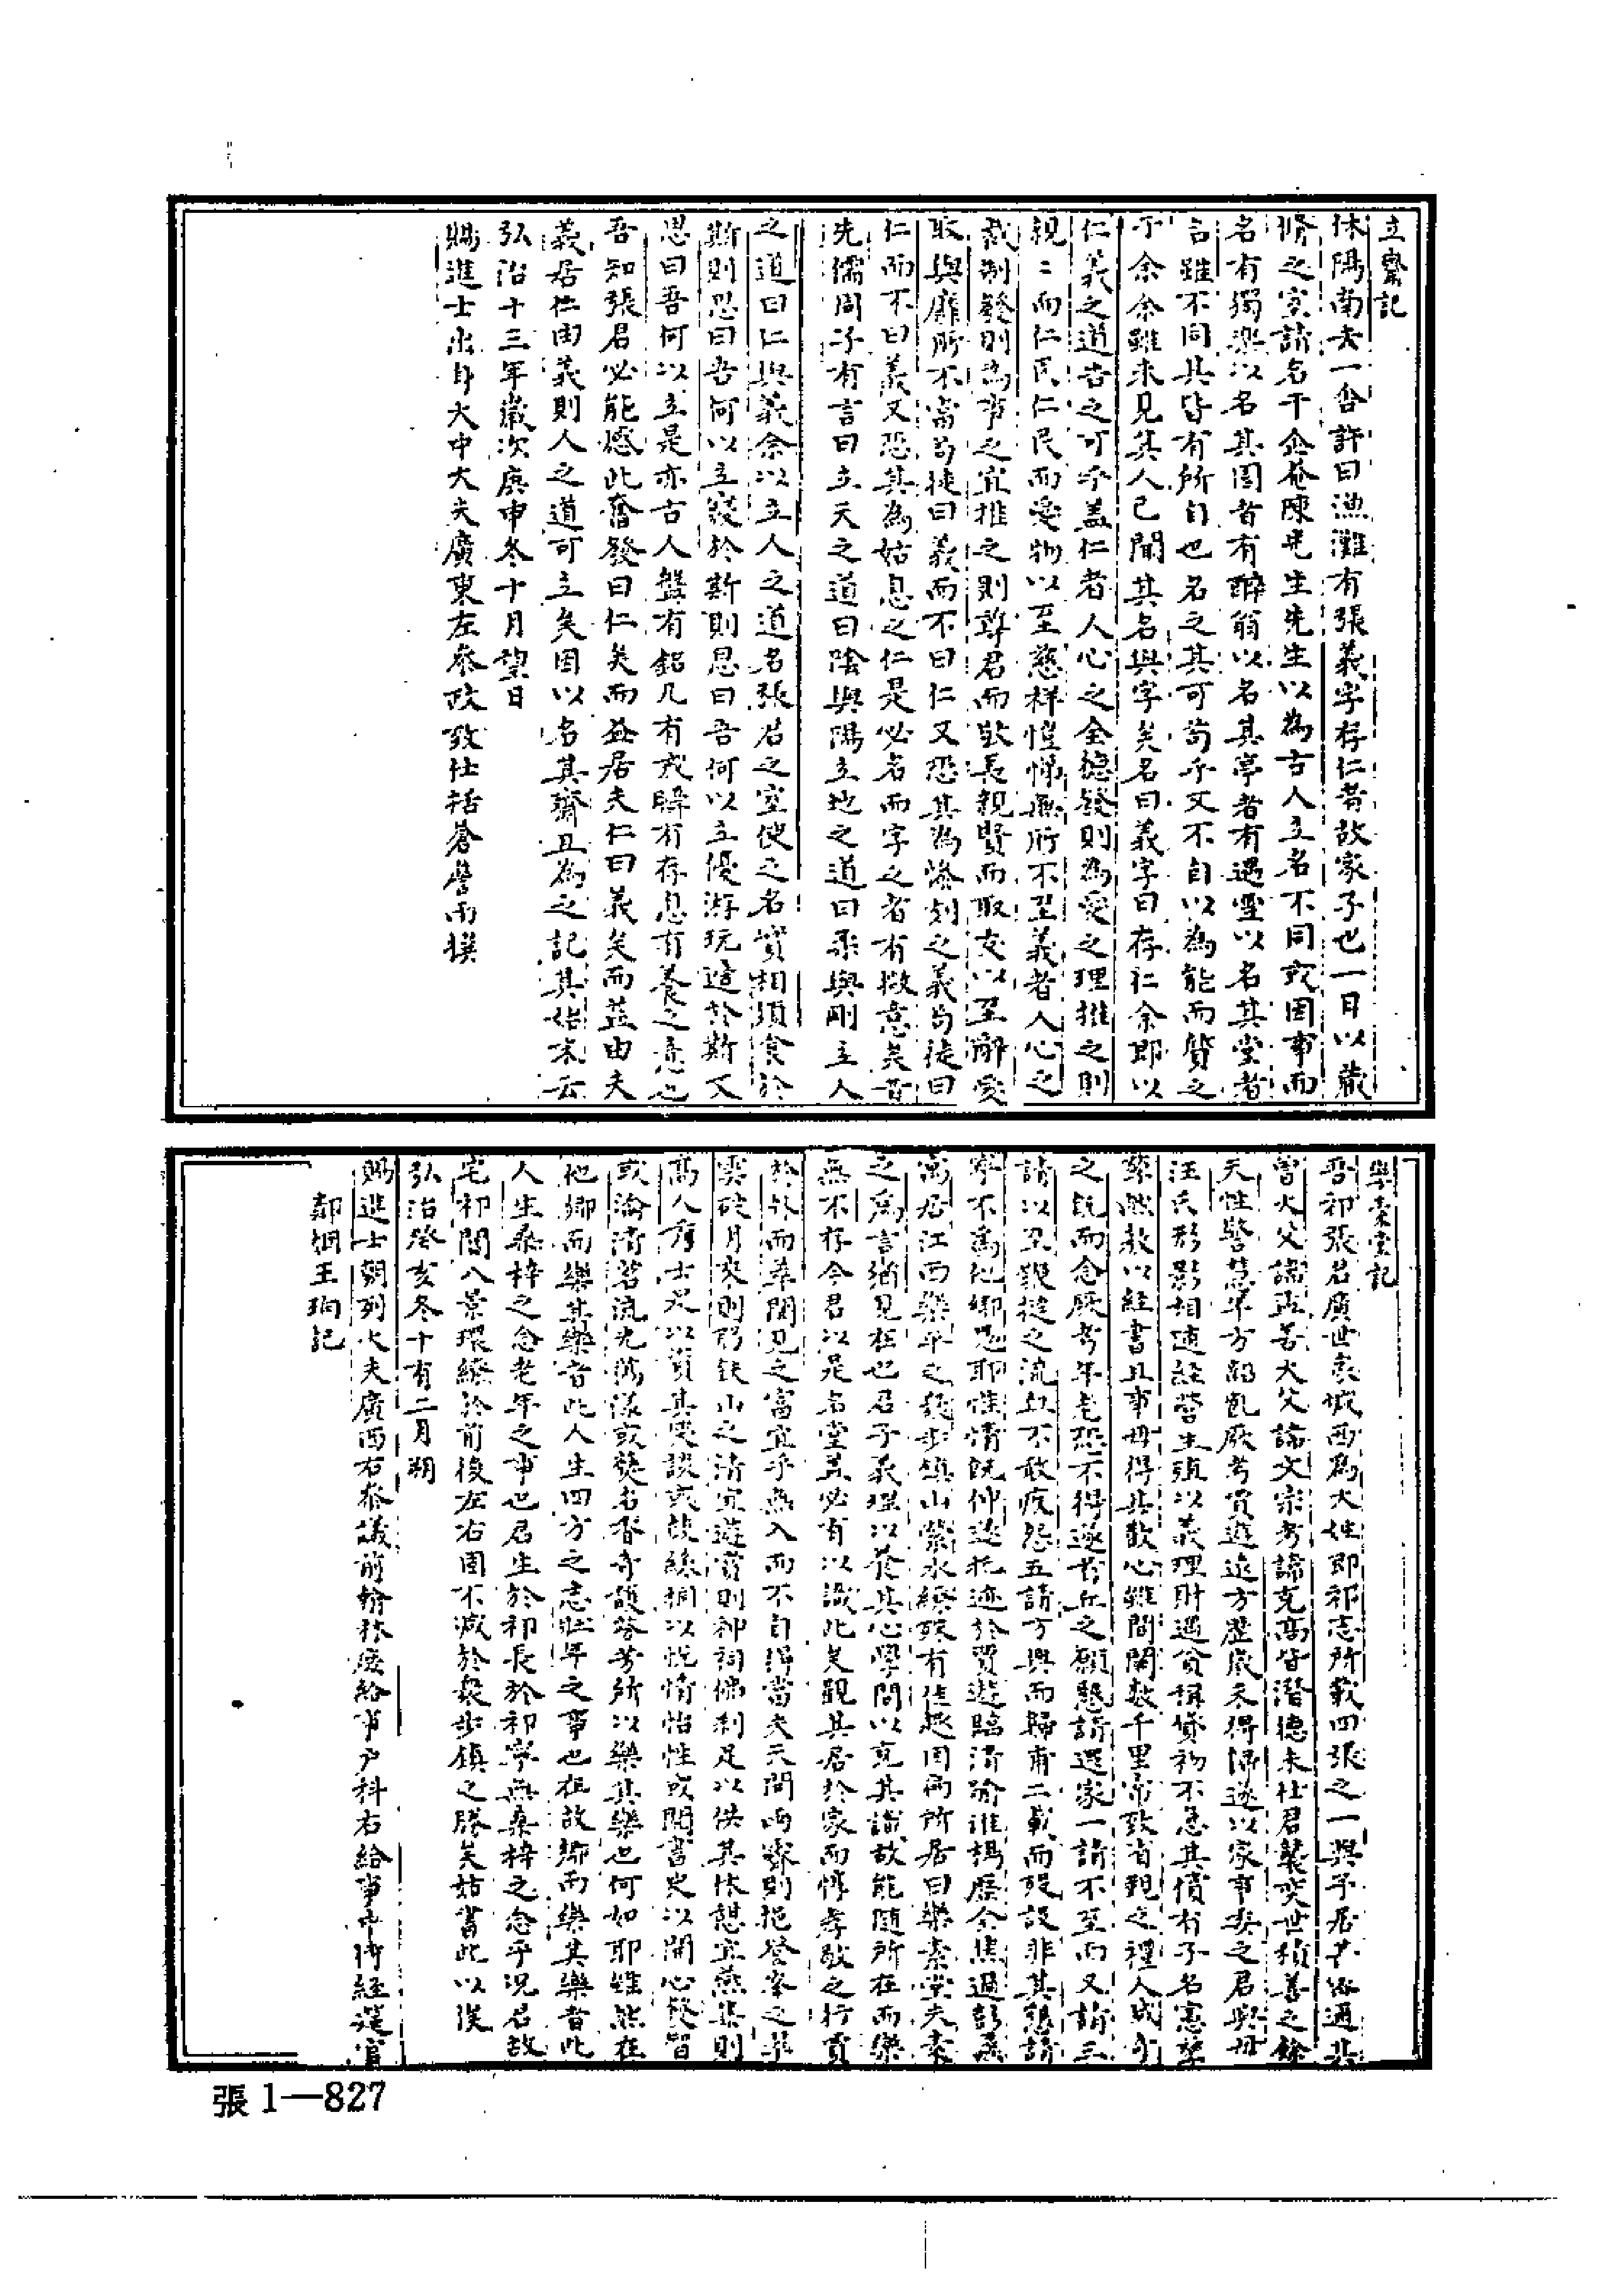 立齋記
休陽南去一舍許曰漁灘有張義字存仁者故家子也一日以藏
脩之室請名于企菴陳先生先生以為古人立名不同或因事而
名有獨樂以名其園者有醉翁以名其亭者有遇雪以名其堂者
言雖不同其皆有所自也名之其可茍乎又不自以為能而質之
于余余雖未見其人已聞其名與字矣名曰義字曰存仁余即以
仁義之道告之可乎盖仁者人心之全德發則為愛之理推之則
親二而仁民仁民而愛物以至慈祥愷悌無所不至義者人心之
裁制發則為事之宜推之則尊君而敬長親賢而取友以至辭受
取與靡所不當茍徒曰義而不曰仁又恐其為慘刻之義茍徒曰
仁而不曰義又恐其為姑息之仁是必名而字之者有微意矣昔
先儒周子有言曰立天之道曰陰與陽立地之道曰柔與剛立人
之道曰仁與義余以立人之道名張君之室使之名實相須食於
斯則思曰吾何以立寢於斯則思曰吾何以立優游玩造於斯又
思曰吾何以立是亦古人盤有銘几有戒瞬有存息有養之意也
吾知張君必能感此奮發曰仁矣而益居夫仁曰義矣而益由夫
義居仁由義則人之道可立矣因以名其齋且為之記其始末云
弘治十三年歲次庚申冬十月望日
賜進士出身大中大夫廣東左叅政致仕括蒼詹雨撰
樂素堂記
吾祁張君廣世家城西爲大姓即祁志所載四張之一與予居
曾大父諱 善大父諱文宗考諱克高皆潛德未仕君襲奕世積善之餘
天性警慧早方 厥考賈遊遠方歷歲未得歸遂以家事委之君與母
汪氏形影相 經營生殖以義理財遇貧稱貸初不急其償有子名憲
教以經書且事母得其歡心雖間關數千里常致省覲之禮人咸
之既而念厥考年老恐不得遂首丘之願懇請還家一請不至而又請三
請以至 撻之流血不敢疾怨五請方興而歸甫二載而歿設非其懇請
寧不爲他鄉 耶 情既 遂托迹於賈遊臨清 淮 歷金焦過彭蠡
寓居江西樂平之 步鎮山縈水繞 有佳趣因 所居曰樂素堂夫素
之爲言猶見在也君子義理以養其心學問以充其識故能隨所在而樂
無不存今君以是名堂盖必有以識此矣觀其居於家而惇孝敬之行賈
於外而 聞見之富宜乎無入而不自得當夫天開雨霽則挹 峯之
雲破月來則 山之清宜遊 則神祠佛刹足以供其休憩宜燕集則
高人 士足以資其 談或 絲桐以悅情怡性或開書史以開心 智
或瀹清茗流光蕩漾或焚名香 芳所以樂其樂也何如耶雖然在
他鄉而樂其樂者此人生四方之志壯年之事也在故鄉而樂其樂者此
人生桑梓之念老年之事也君生於祁長於祁寧無桑梓之念乎況君故
宅祁閶八景環繞於前後左右固不減於衆步鎮之勝矣姑書此以俟
弘治癸亥冬十有二月朔
賜進士朝列大夫廣西右叅議前翰林 給事户科右給事中侍經筵官
王珦記
張 1—827